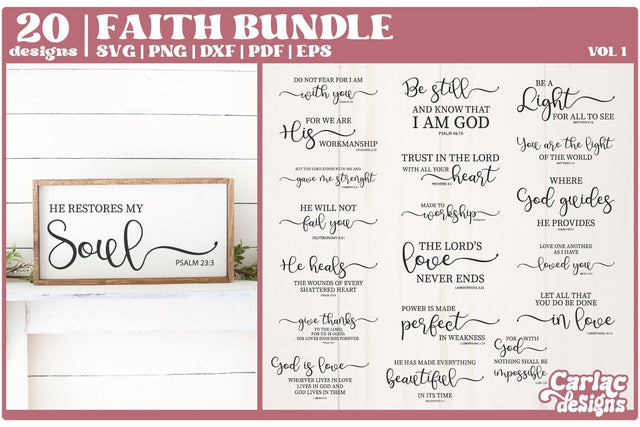 20
designs
FAITH BUNDLE
SVG | PNG | DXF | PDF | EPS
VOL 1
HE RESTORES MY
Soul
PSALM 23:3
DO NOT FEAR FOR I AM
with you
FOR WE ARE
His
WORKMANSHIP
BUT THE LORD STOOD WITH ME AND
gave me strenght
HE WILL NOT
fail you
DEUTERONOMY 4:31
He heals
THE WOUNDS OF EVERY
SHATTERED HEART
PSALM 147:3
give thanks
TO THE LORD,
FOR HE IS GOOD;
HIS LOVES ENDURES FOREVER.
God is love
WHOEVER LIVES IN LOVE
LIVES IN GOD AND
GOD LIVES IN THEM
Be still
AND KNOW THAT
I AM GOD
PSALM 46:10
TRUST IN THE LORD
WITH ALL YOUR
heart
PROVERBS 3:5
MADE TO
workship
THE LORD'S
love
NEVER ENDS
LAMENTATIONS 3:22
POWER IS MADE
perfect
IN WEAKNESS
HE HAS MADE EVERYTHING
beautiful
IN ITS TIME
BE A
Light
FOR ALL TO SEE
You are the light
OF THE WORLD
WHERE
God guides
HE PROVIDES
LOVE ONE ANOTHER
AS I HAVE
loved you
LET ALL THAT
YOU DO BE DONE
in love
FOR WITH
God
NOTHING SHALL BE
impossible
Carlac
designs